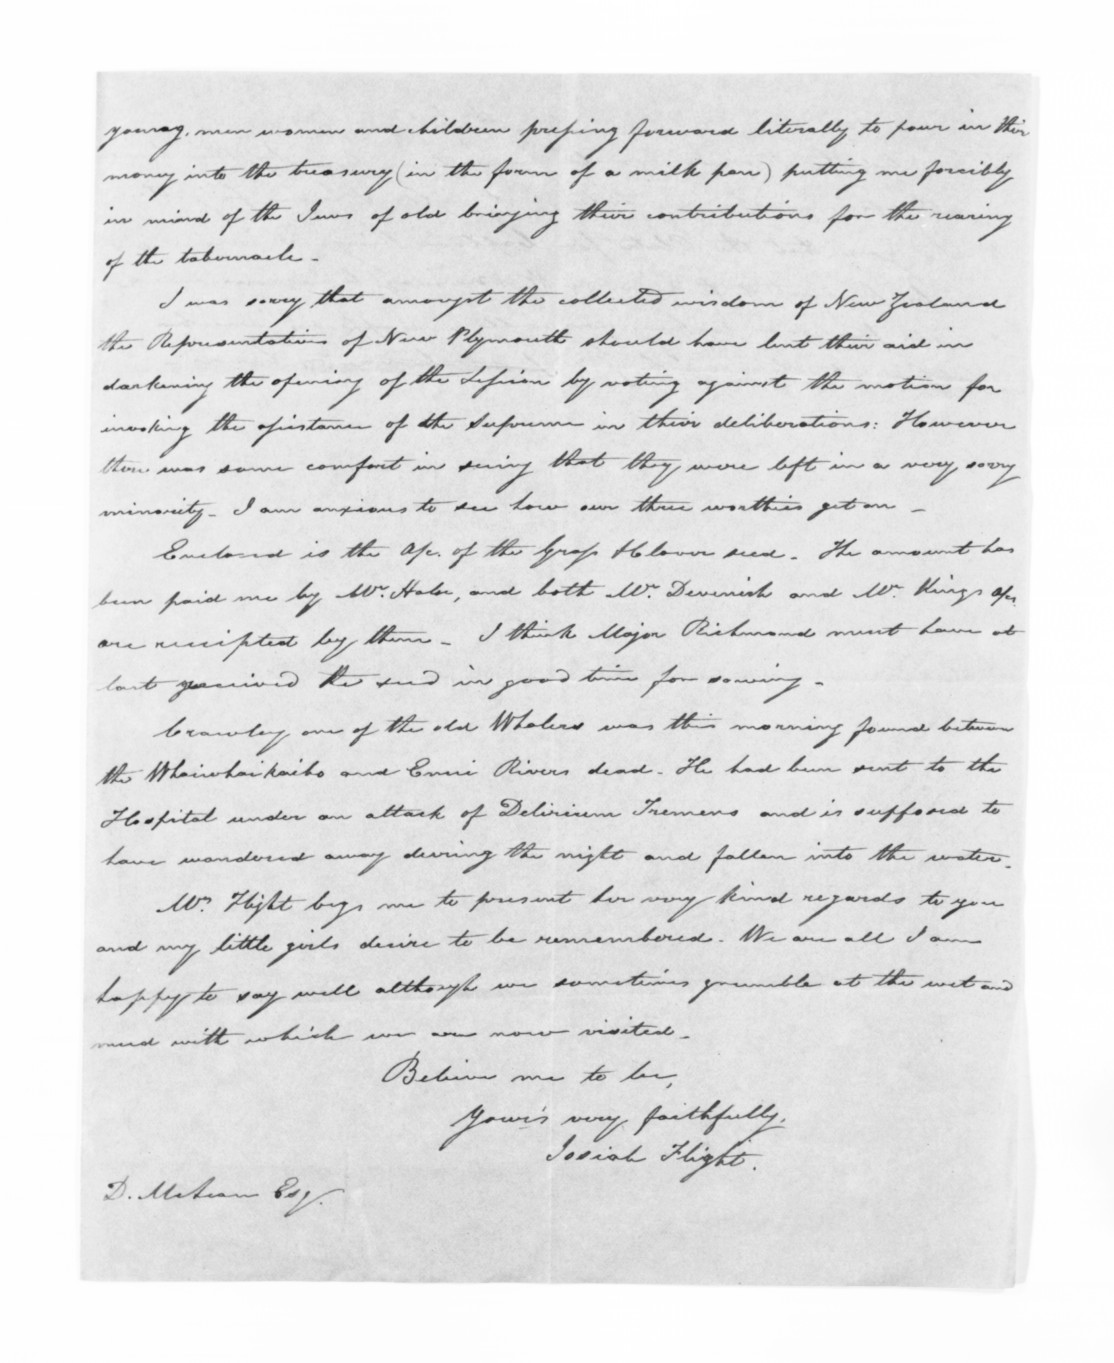 young, men women and children pressing forward literally to pour in their
money into the treasury (in the form of a milk pan) putting me forcibly
in mind of the Jews of old bringing their contributions for the rearing
of the tabernacle -
I was sorry that amongst the collected wisdom of New Zealand
the Representatives of New Plymouth should have lent their aid in
darkening the opening of the Session by voting against the motion for
invoking the assistance of the Supreme in their deliberations: However
there was some comfort in seeing that they were left in a very sorry
minority - I am anxious to see how our three worthies get on -
Enclosed is the a/c. of the Grass & Clover seed - The amount has
been paid me by Mr. Halse, and both Mr. Devenish and Mr. Kings a/cs.
are receipted by them - I think Major Richmond must have at
last received the seed in good time for sowing -
Crawley one of the old Whalers was this morning found between
the Whaiwhaikaiho and Enui Rivers dead - He had been sent to the
Hospital under an attack of Delirium Tremens and is supposed to
have wandered away during the night and fallen into the water -
Mrs. Flight begs me to present her very kind regards to you
and my little girls desire to be remembered - We are all I am
happy to say well although we sometimes grumble at the wet and
mud with which we are now visited -
Believe me to be,
Your's very faithfully,
Josiah Flight.
D. McLean Esq.